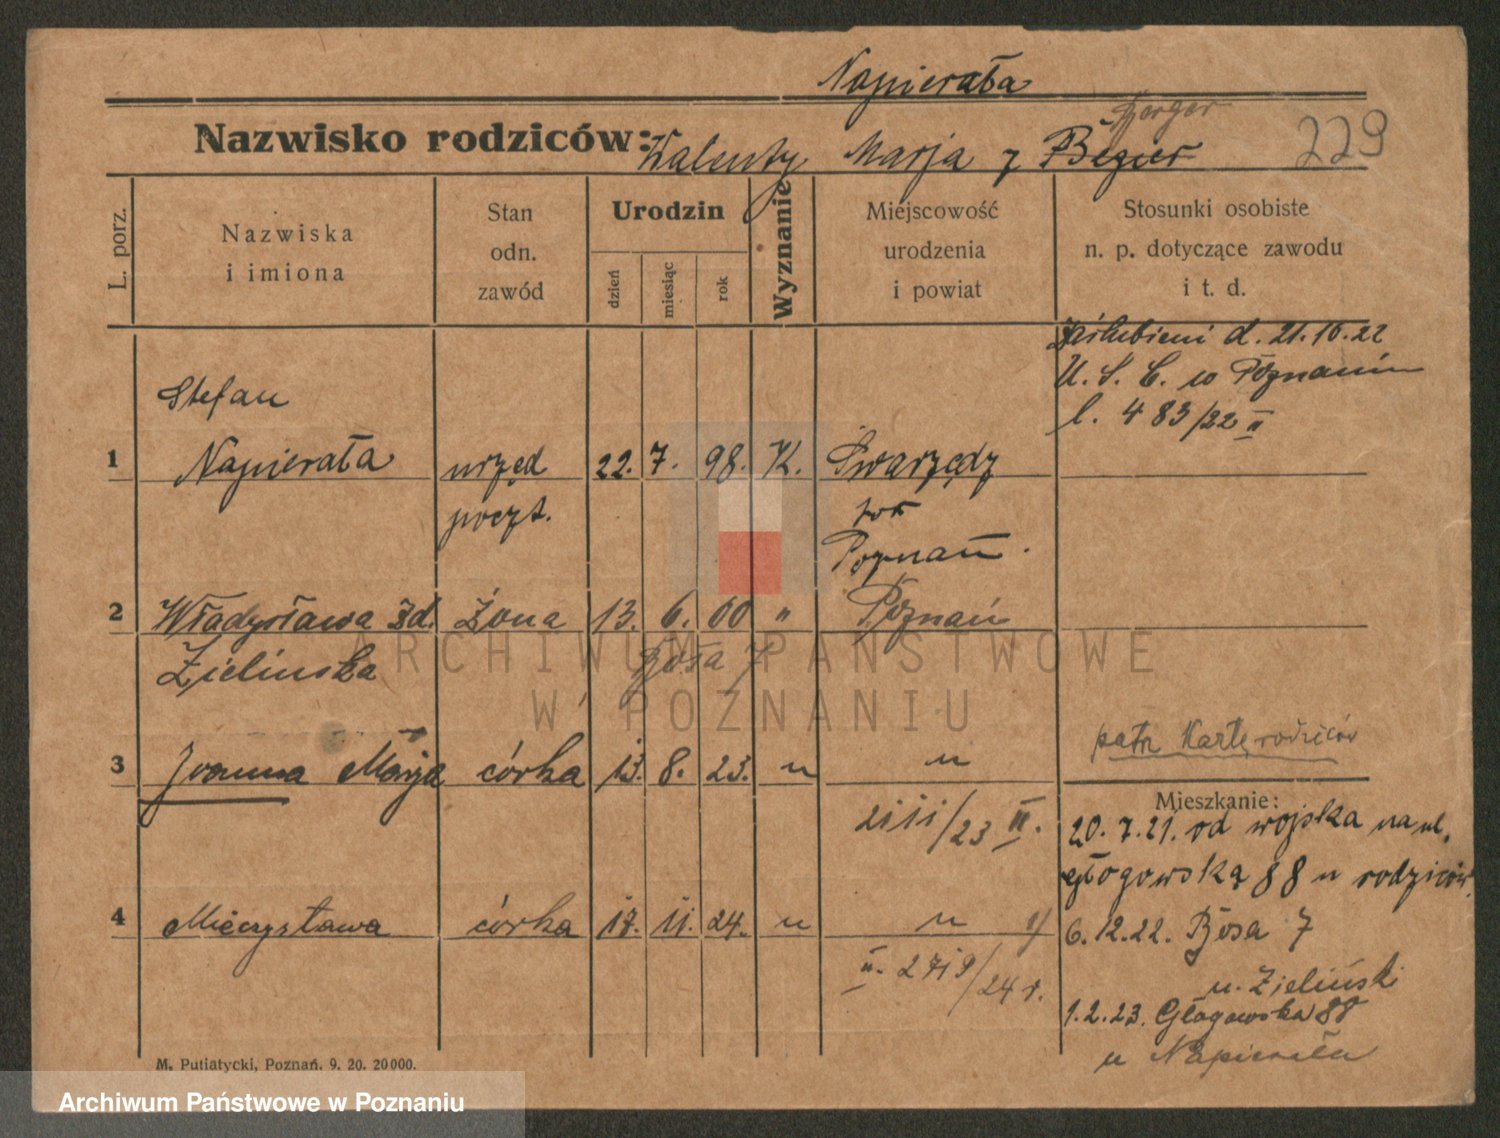 Napierała
Berger
Nazwisko rodziców: Walenty Marja z Begier 229
L. porz.
Nazwiska
i imiona
Stan
odn.
zawód
Urodzin
dzień
miesiąc
rok
Wyznanie
Miejscowość
urodzenia
i powiat
Stosunki osobiste
n. p. dotyczące zawodu
i t. d.
Zaślubieni d. 21.10.22
U. S. C. w Poznaniu
l. 483/22 II
Stefan
1 Napierała urzęd 22. 7. 98. K. Swarzędz
poczt.
Poznań.
2 Władysława zd. Żona 13. 6. 00 " Poznań
Zielinska
Bosa 7
patrz Kartę rodziców
3 Joanna Marja córka 13. 8. 23. " "
2111/23 II.
Mieszkanie:
20. 7. 21. od wojska na ul.
głogowską 88 u rodziców.
4 Mieczysława córka 17. 11. 24. " "
II. 2719/24 r.
6. 12. 22. Bosa 7
u. Zieliński
1. 2. 23. Głogowska 88
u Napierała
M. Putiatycki, Poznań. 9. 20. 20000.
ARCHIWUM PAŃSTWOWE
W POZNANIU
Archiwum Państwowe w Poznaniu